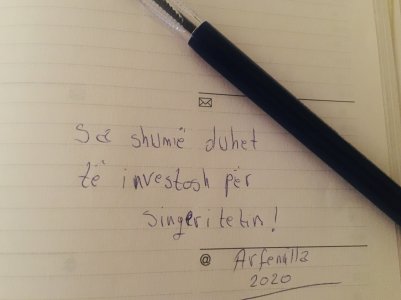 Sa shumë duhet
të investosh për
singeritetin!
@ Arfemilla
2020